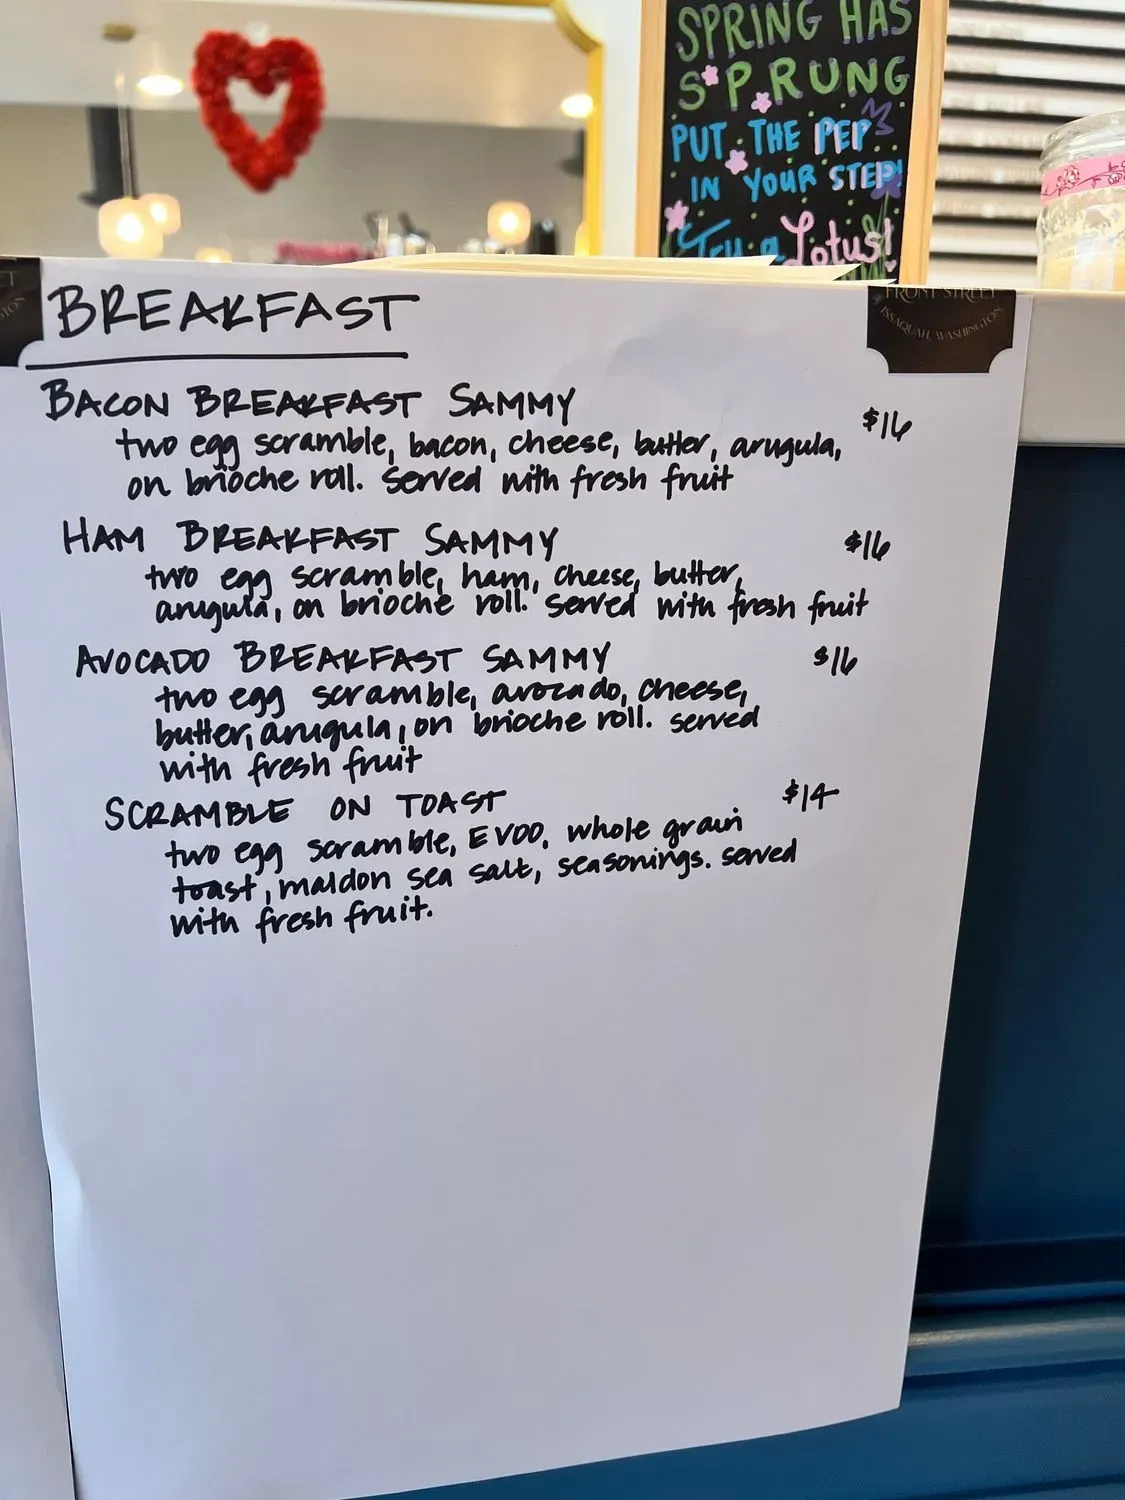 SPRING HAS
SPRUNG
PUT THE PEP
IN YOUR STEP!
Try a Lotus!
FRONT STREET
ISSAQUAH, WASHINGTON
BREAKFAST
BACON BREAKFAST SAMMY $16
two egg scramble, bacon, cheese, butter, arugula,
on brioche roll. Served with fresh fruit
HAM BREAKFAST SAMMY $16
two egg scramble, ham, cheese, butter,
arugula, on brioche roll. Served with fresh fruit
AVOCADO BREAKFAST SAMMY $16
two egg scramble, avocado, cheese,
butter, arugula, on brioche roll. served
with fresh fruit
SCRAMBLE ON TOAST $14
two egg scramble, EVOO, whole grain
toast, maldon sea salt, seasonings. served
with fresh fruit.